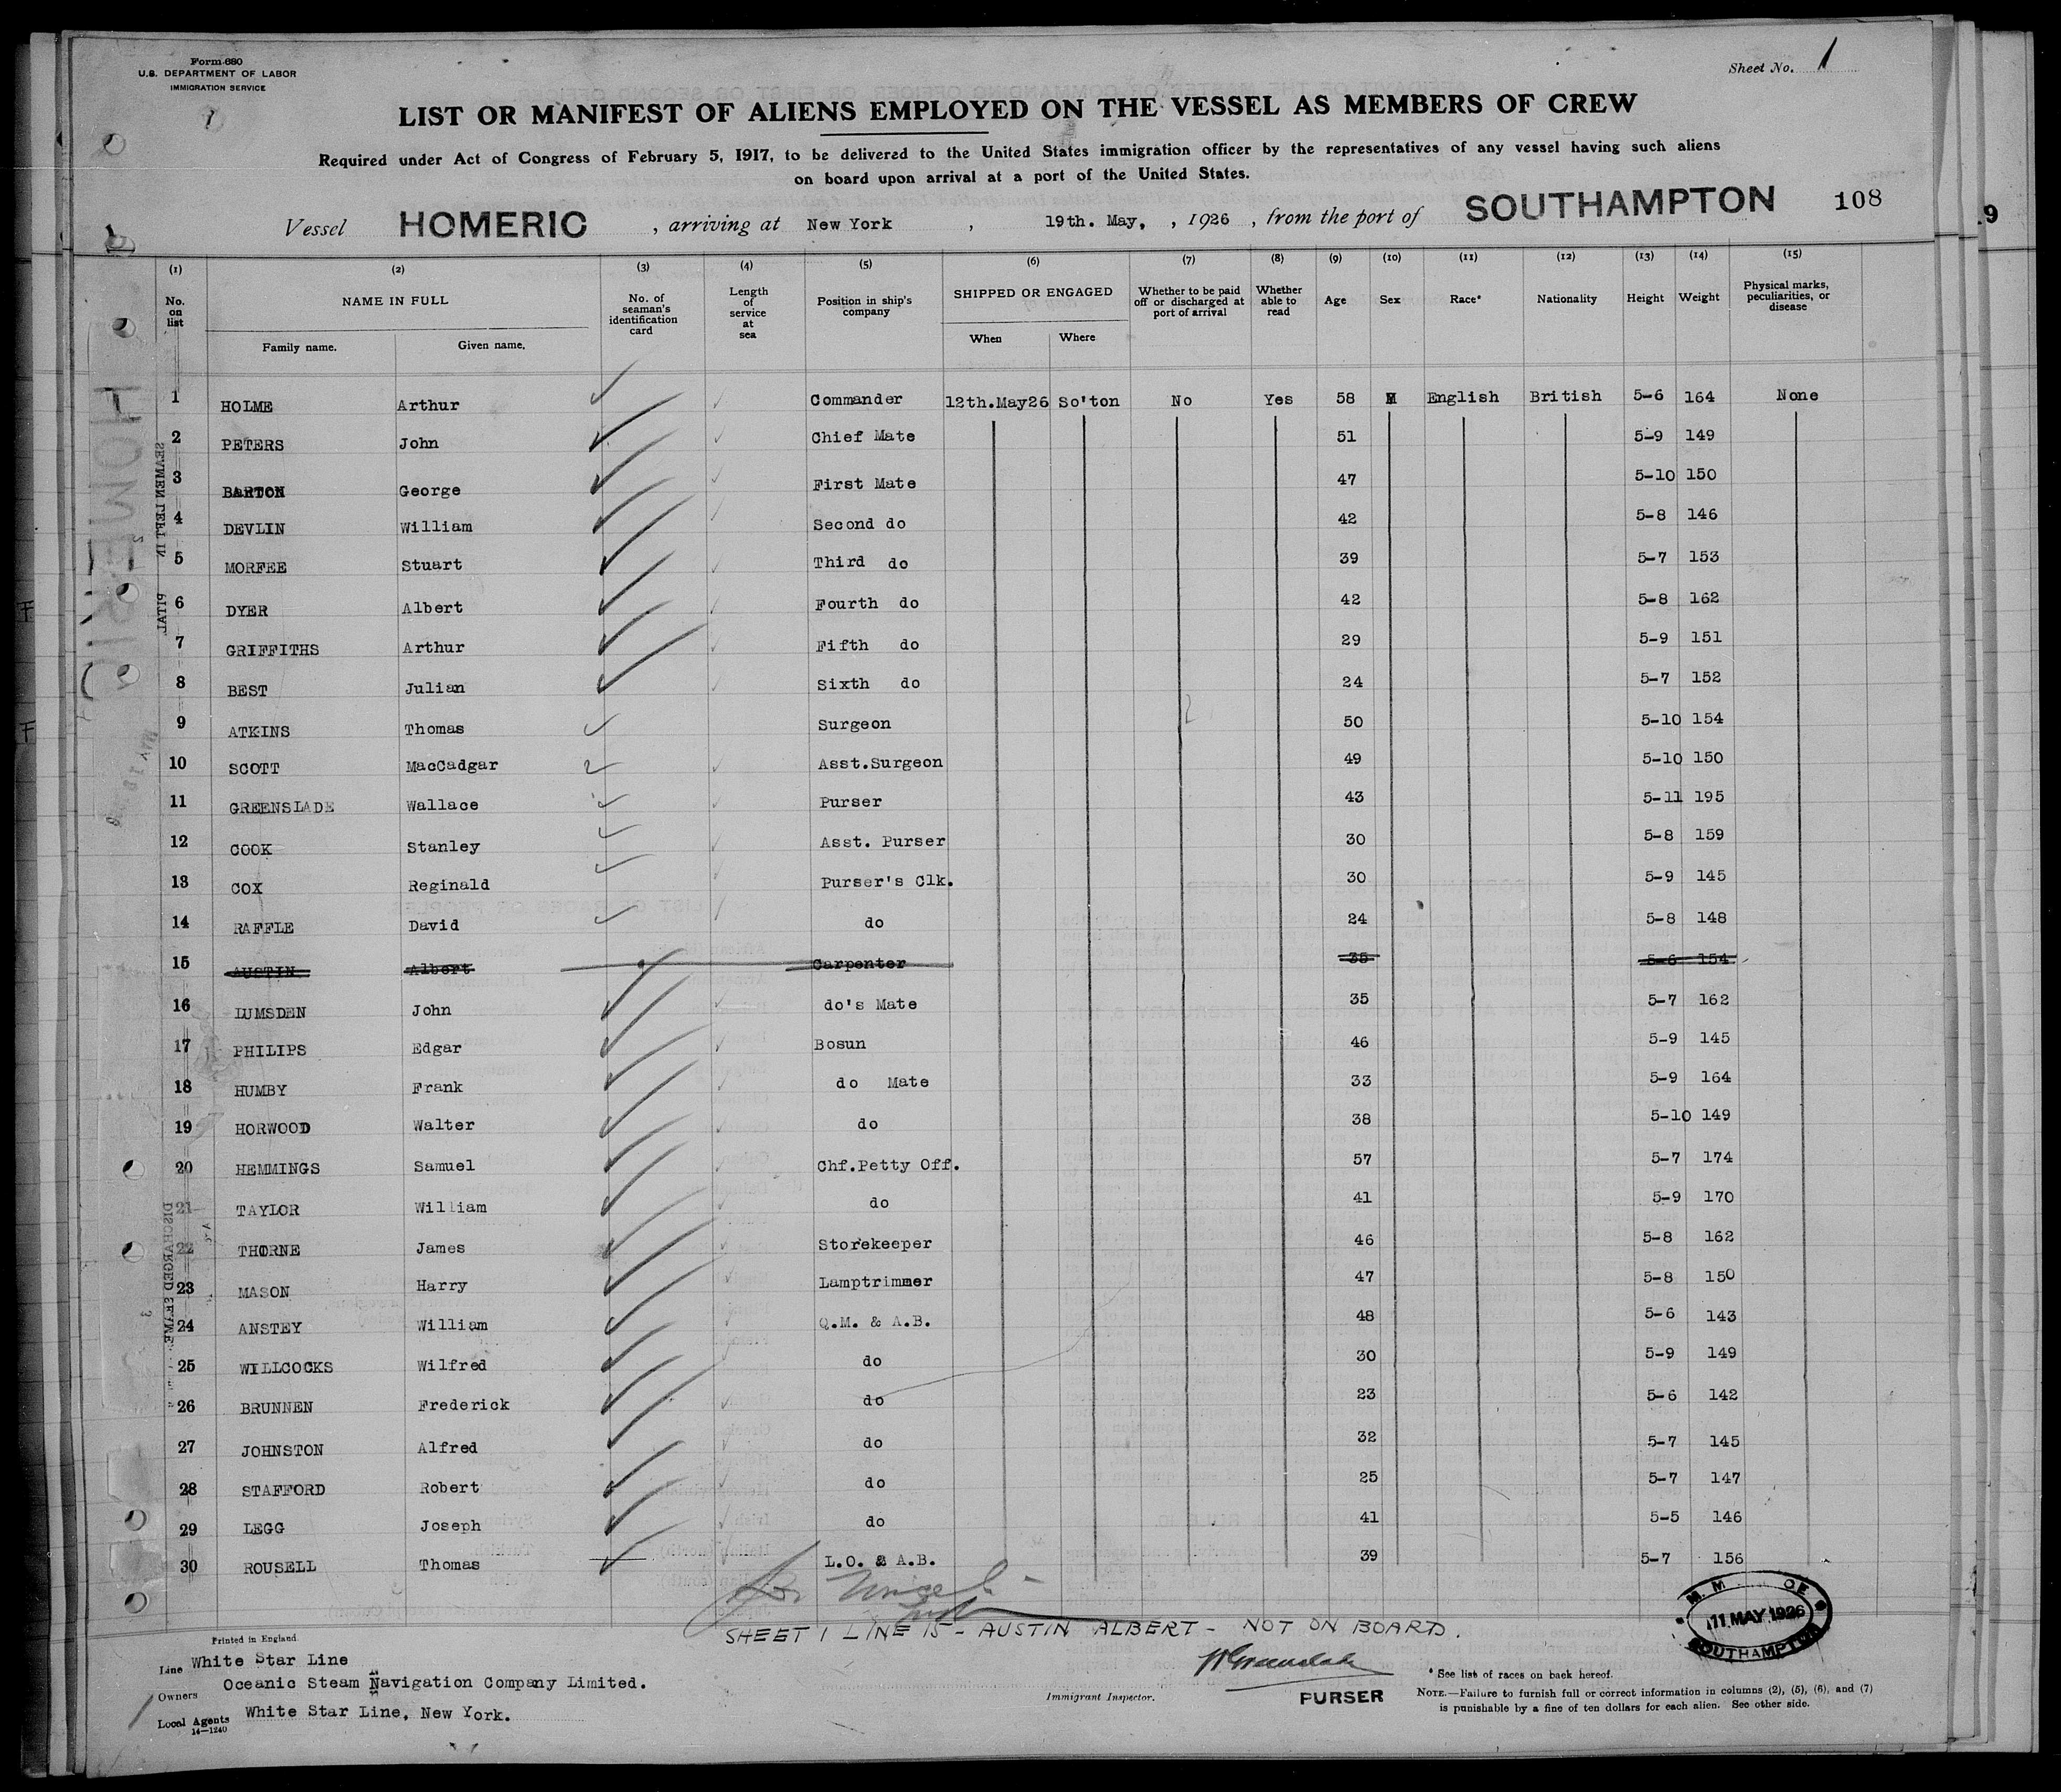 Form 680
U.S. DEPARTMENT OF LABOR
IMMIGRATION SERVICE
Sheet No. 1
LIST OR MANIFEST OF ALIENS EMPLOYED ON THE VESSEL AS MEMBERS OF CREW
Required under Act of Congress of February 5, 1917, to be delivered to the United States immigration officer by the representatives of any vessel having such aliens
on board upon arrival at a port of the United States.
Vessel HOMERIC , arriving at New York , 19th. May, , 1926 , from the port of SOUTHAMPTON 108
(1) (2) (3) (4) (5) (6) (7) (8) (9) (10) (11) (12) (13) (14) (15)
No. on list NAME IN FULL Family name. Given name. No. of seaman's identification card Length of service at sea Position in ship's company SHIPPED OR ENGAGED When Where Whether to be paid off or discharged at port of arrival Whether able to read Age Sex Race* Nationality Height Weight Physical marks, peculiarities, or disease
1 HOLME Arthur Commander 12th.May26 So'ton No Yes 58 M English British 5-6 164 None
2 PETERS John Chief Mate 51 5-9 149
3 BARTON George First Mate 47 5-10 150
4 DEVLIN William Second do 42 5-8 146
5 MORFEE Stuart Third do 39 5-7 153
6 DYER Albert Fourth do 42 5-8 162
7 GRIFFITHS Arthur Fifth do 29 5-9 151
8 BEST Julian Sixth do 24 5-7 152
9 ATKINS Thomas Surgeon 50 5-10 154
10 SCOTT MacCadgar Asst.Surgeon 49 5-10 150
11 GREENSLADE Wallace Purser 43 5-11 195
12 COOK Stanley Asst. Purser 30 5-8 159
13 COX Reginald Purser's Clk. 30 5-9 145
14 RAFFLE David do 24 5-8 148
15 AUSTIN Albert Carpenter 35 5-6 154
16 LUMSDEN John do's Mate 35 5-7 162
17 PHILIPS Edgar Bosun 46 5-9 145
18 HUMBY Frank do Mate 33 5-9 164
19 HORWOOD Walter do 38 5-10 149
20 HEMMINGS Samuel Chf.Petty Off. 57 5-7 174
21 TAYLOR William do 41 5-9 170
22 THORNE James Storekeeper 46 5-8 162
23 MASON Harry Lamptrimmer 47 5-8 150
24 ANSTEY William Q.M. & A.B. 48 5-6 143
25 WILLCOCKS Wilfred do 30 5-9 149
26 BRUNNEN Frederick do 23 5-6 142
27 JOHNSTON Alfred do 32 5-7 145
28 STAFFORD Robert do 25 5-7 147
29 LEGG Joseph do 41 5-5 146
30 ROUSELL Thomas L.O. & A.B. 39 5-7 156
SHEET 1 LINE 15 - AUSTIN ALBERT - NOT ON BOARD.
11 MAY 1926
SOUTHAMPTON
Printed in England
Line White Star Line
Owners Oceanic Steam Navigation Company Limited.
Local Agents White Star Line, New York.
14-1240
Immigrant Inspector.
PURSER
* See list of races on back hereof.
NOTE.—Failure to furnish full or correct information in columns (2), (5), (6), and (7)
is punishable by a fine of ten dollars for each alien. See other side.
HOMERIC